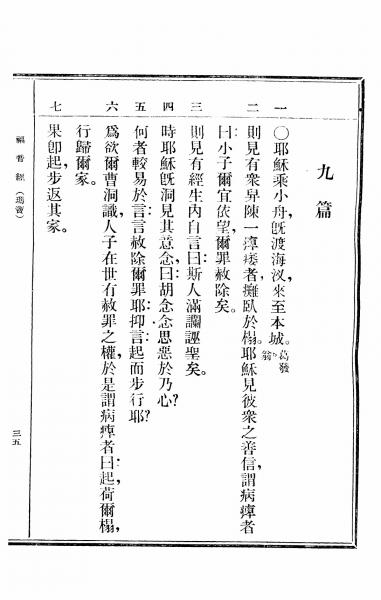 九篇
一 〇耶穌乘小舟,旣渡海汊,來至本城。葛發翁
二 則見有衆舁陳一瘴痿者,攤臥於榻。耶穌見彼衆之善信,謂病瘴者
曰:小子爾宜依望,爾罪赦除矣。
三 則見有經生內自言曰:斯人滿讕誣聖矣。
四 時耶穌旣洞見其意念,曰:胡念念思惡於乃心?
五 何者較易於言:言赦除爾罪耶;抑言:起而步行耶?
六 爲欲爾曹洞識,人子在世有赦罪之權,於是謂病瘴者曰:起,荷爾榻,
行歸爾家。
七 果卽起,步返其家。
福音經(瑪竇)
三五